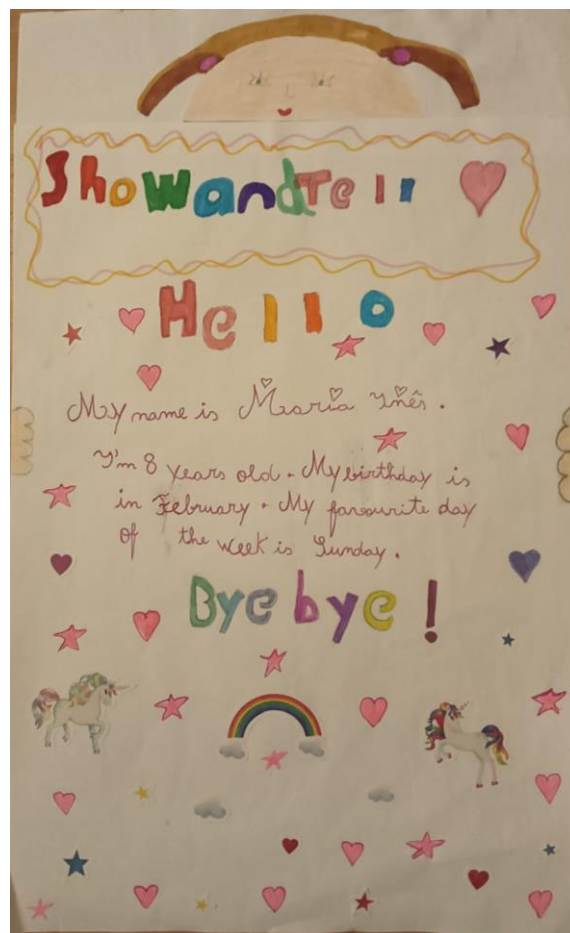 Show and Tell
Hello
My name is Maria Inês.
I'm 8 years old. My birthday is
in February. My favourite day
of the week is Sunday.
Bye bye!